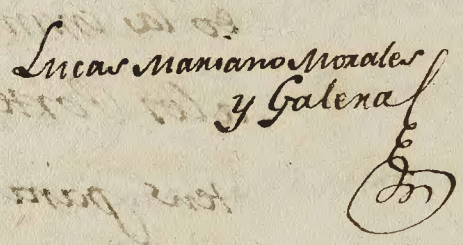 Lucas Mariano Morales
y Galena